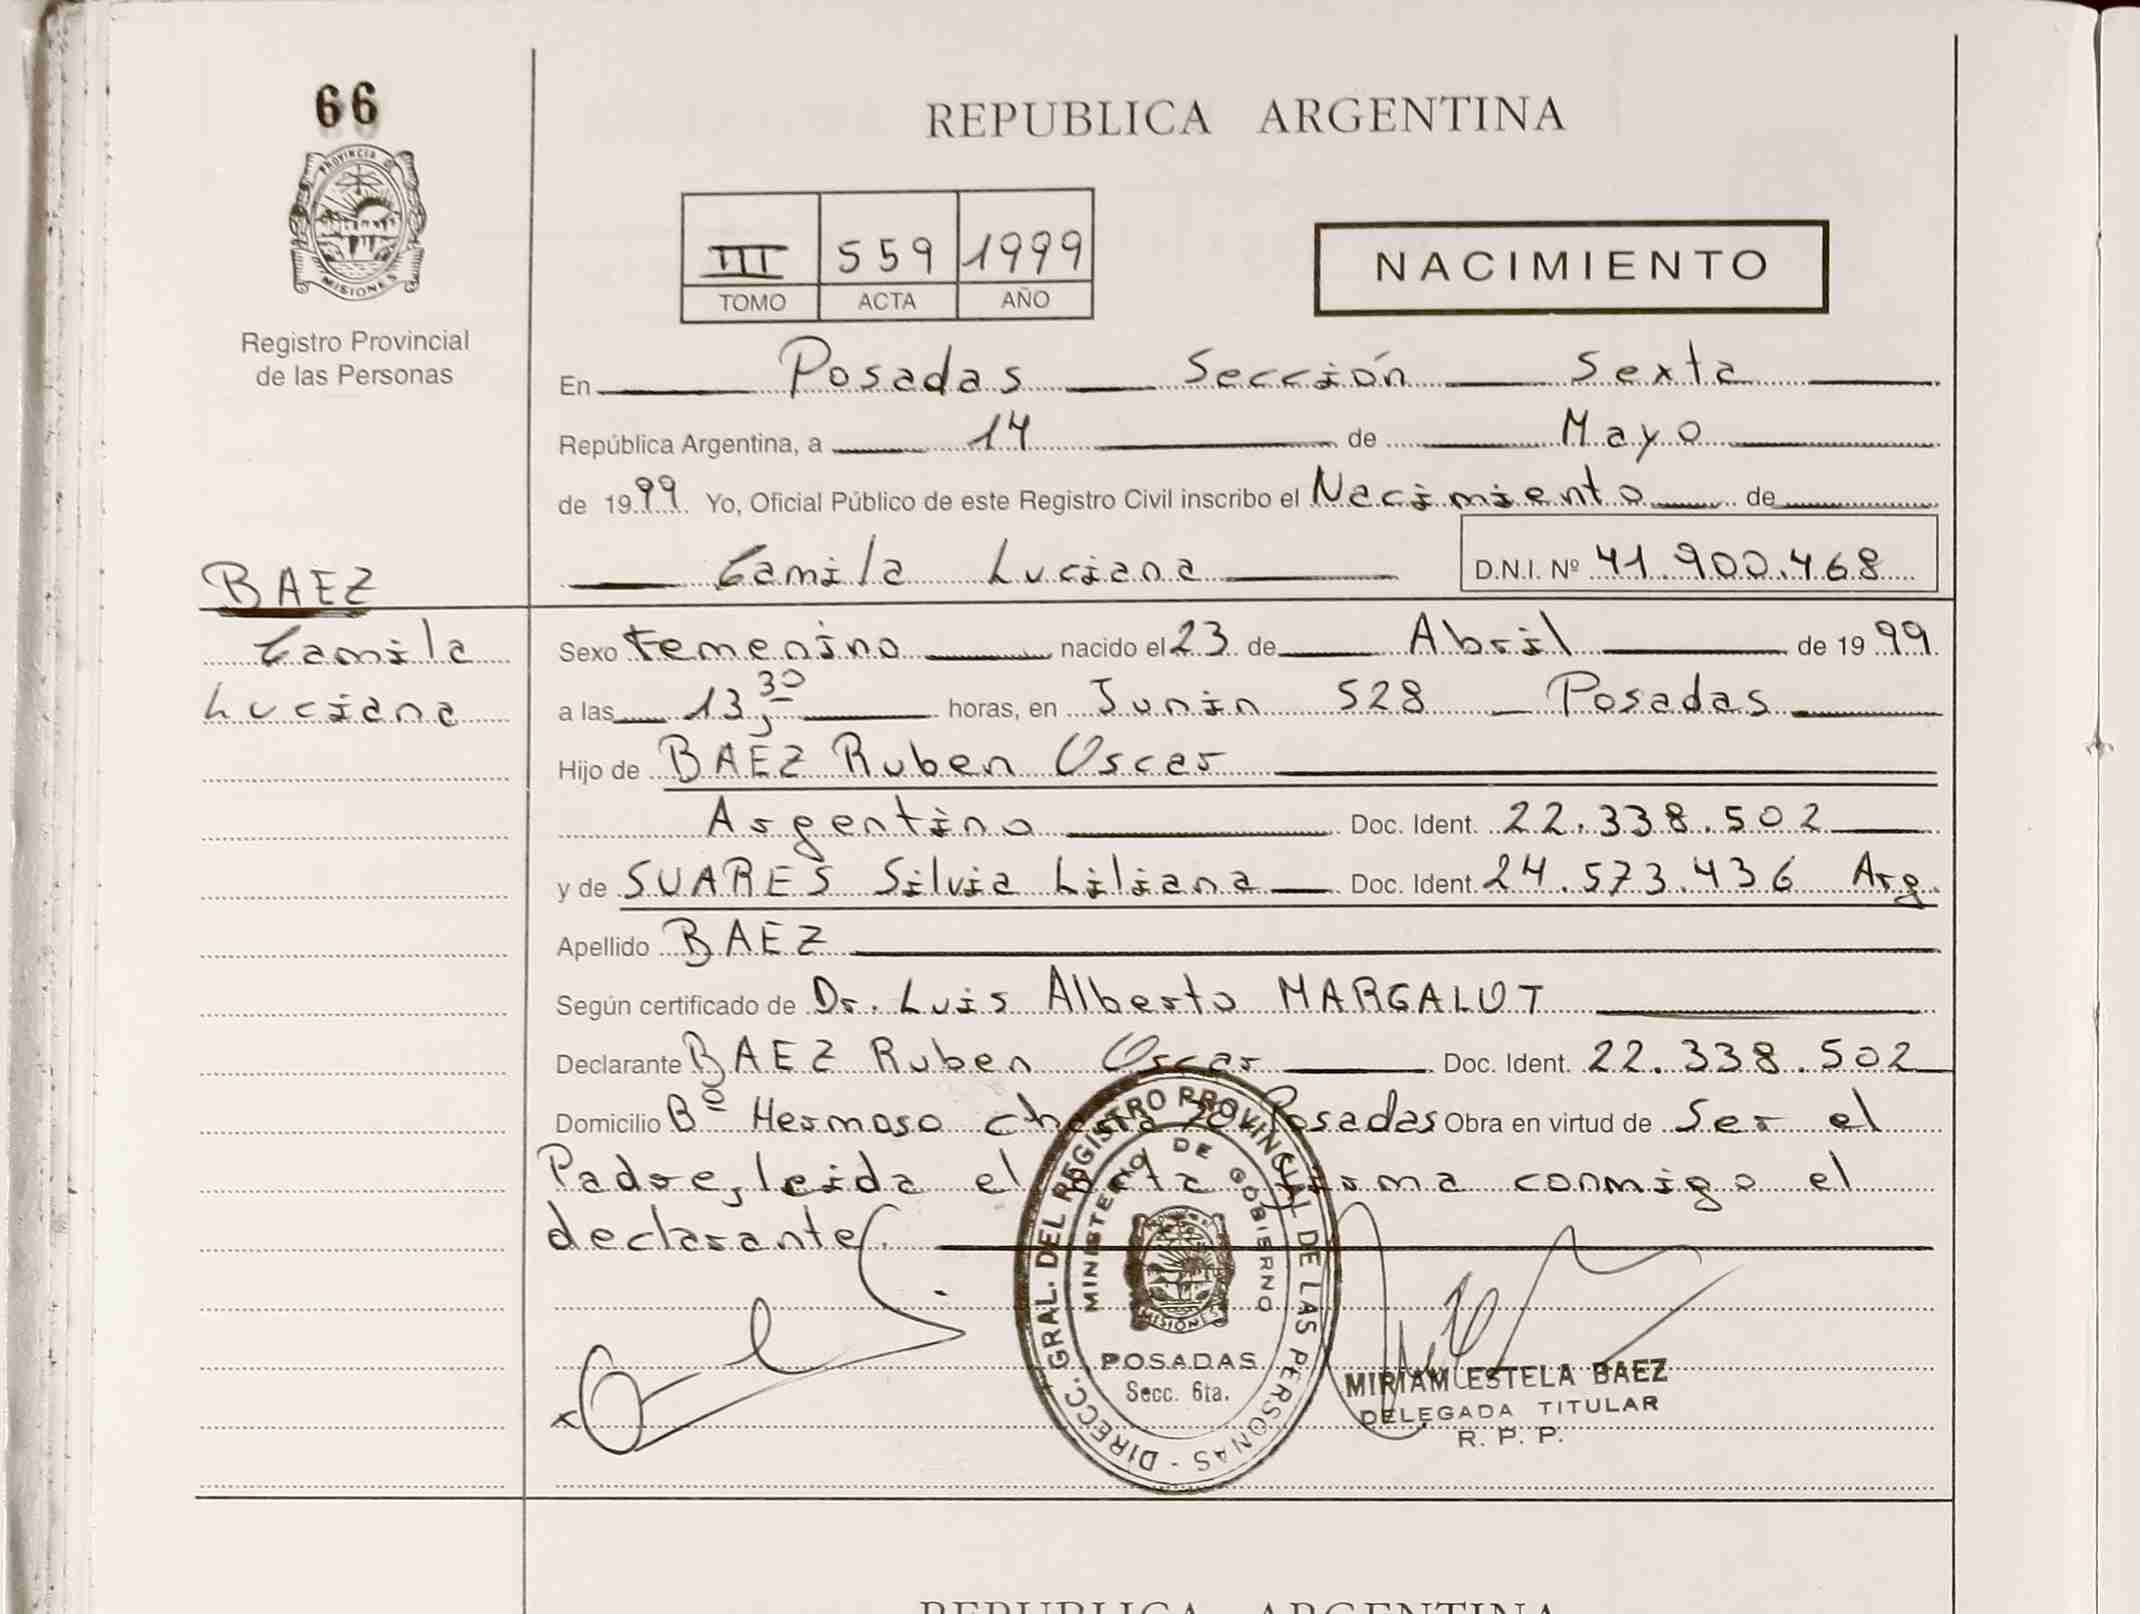 66
PROVINCIA DE
MISIONES
Registro Provincial
de las Personas
REPUBLICA ARGENTINA
III 559 1999
TOMO ACTA AÑO
NACIMIENTO
En Posadas Sección Sexta
República Argentina, a 14 de Mayo
de 1999. Yo, Oficial Público de este Registro Civil inscribo el Nacimiento de
Camila Luciana D.N.I. Nº 41.900.468
BAEZ
Camila
Luciana
Sexo Femenino nacido el 23 de Abril de 1999.
a las 13,30 horas, en Junin 528 _ Posadas
Hijo de BAEZ Ruben Oscar
Argentino Doc. Ident. 22.338.502
y de SUARES Silvia Liliana Doc. Ident. 24.573.436 Arg.
Apellido BAEZ
Según certificado de Dr. Luis Alberto MARGALOT
Declarante BAEZ Ruben Oscar Doc. Ident. 22.338.502
Domicilio Bº Hermoso Posadas Obra en virtud de Ser el
Padre, leida el acta firma conmigo el
declarante.
DIRECC. GRAL. DEL REGISTRO PROVINCIAL DE LAS PERSONAS -
MINISTERIO DE GOBIERNO
MISIONES
POSADAS
Secc. 6ta.
MIRIAM ESTELA BAEZ
DELEGADA TITULAR
R. P. P.
REPUBLICA ARGENTINA